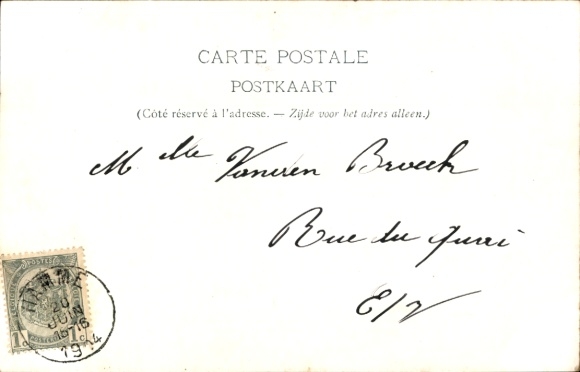 CARTE POSTALE
POSTKAART
(Côté réservé à l'adresse. — Zijde voor het adres alleen.)
M Mlle Vanden Broeck
Rue du Quai
E/V
HAMME
20
JUIN
1904
1c 1c